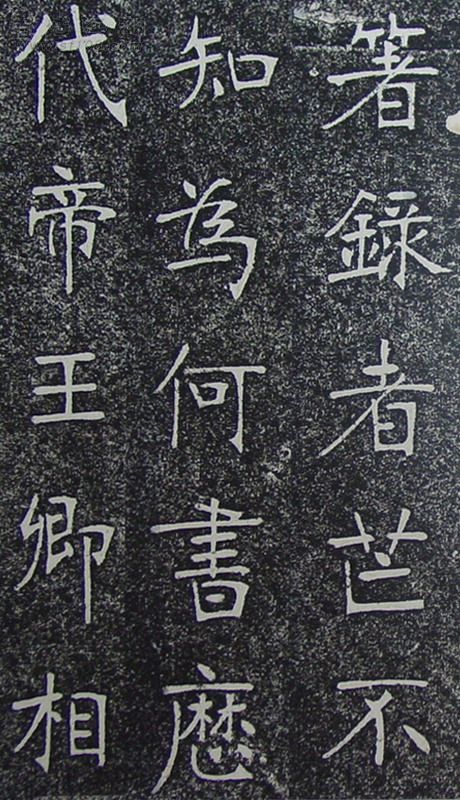 箸錄者芒不
知為何書歷
代帝王卿相